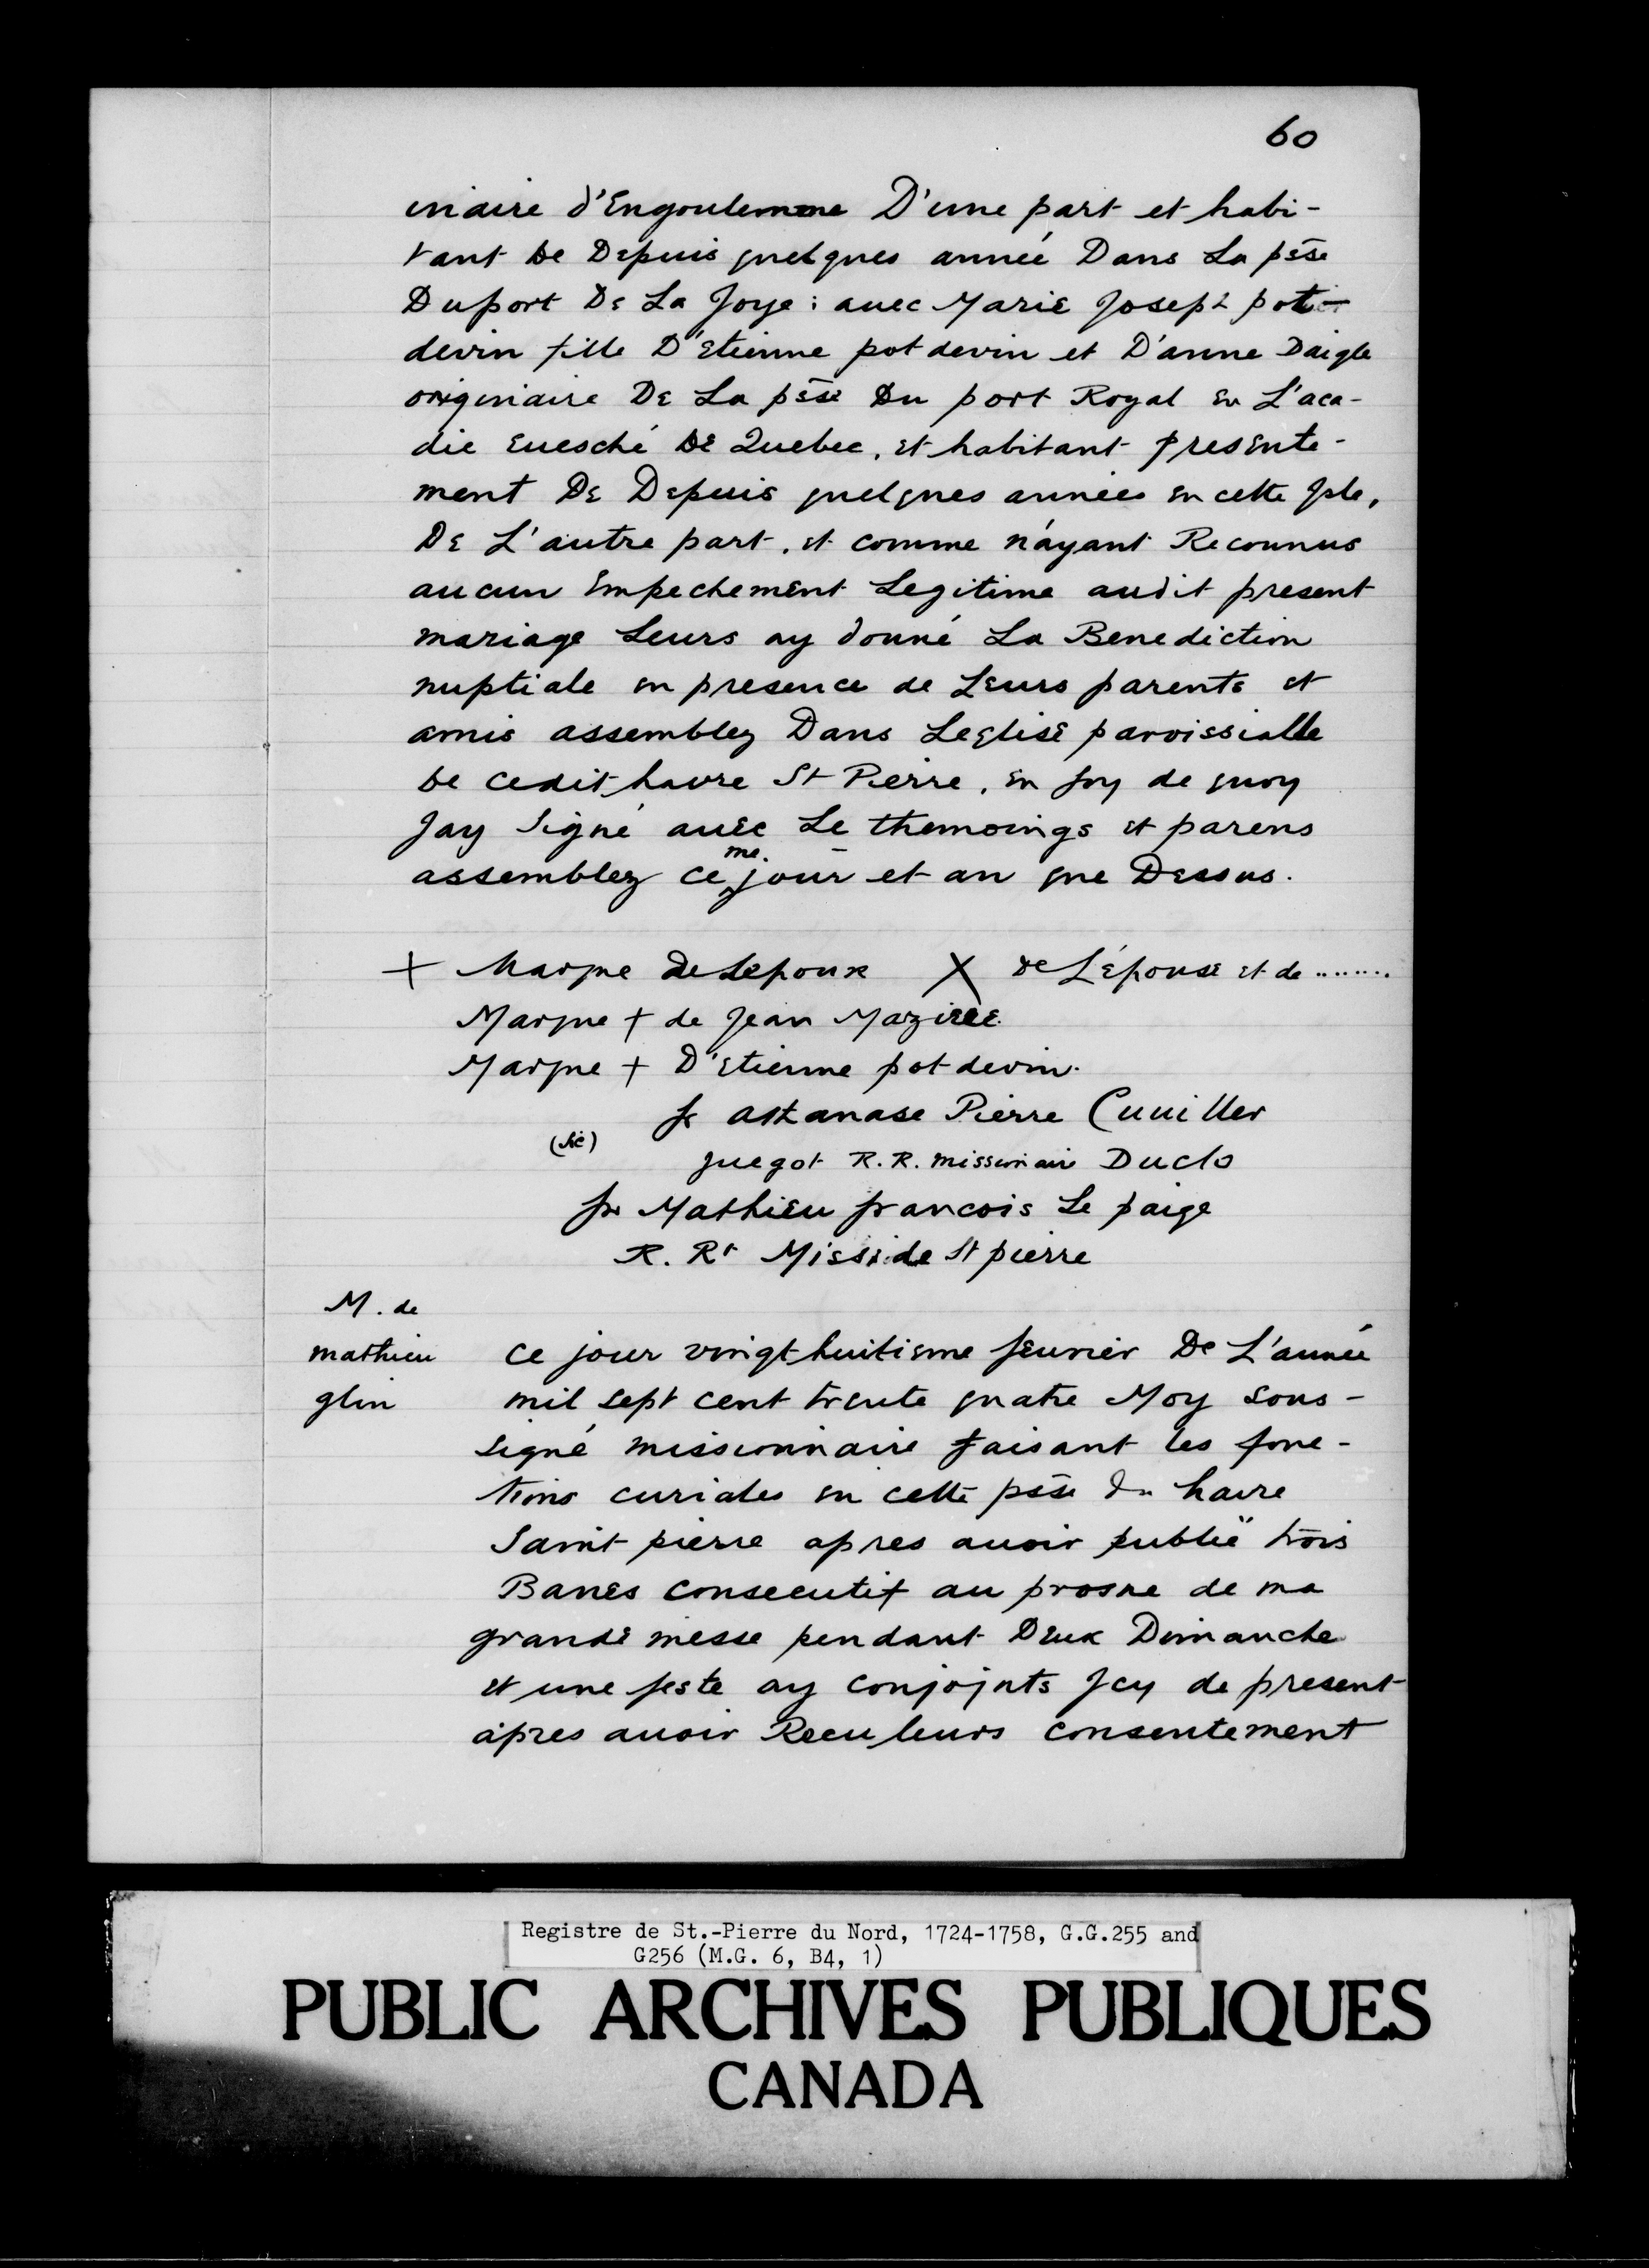 60
inaire d'Engoulemme D'une part et habi-
tant De Depuis quelques anneé Dans La pŝse
Duport De La Joye : auec Marie Joseph pot-
devin fille D'Etienne pot devin et D'anne Daigle
originaire De La pŝse Du port Royal en L'aca-
die Euesché de Quebec, et habitant presente-
ment De Depuis quelques annees en cette Jsle,
De L'autre part, et comme n'ayant Reconnus
aucun Empechement Legitime audit present
mariage Leurs ay donné La Benediction
nuptiale en presence de Leurs parents et
amis assemblez Dans Leglise paroissialle
de cedit havre St Pierre, en foy de quoy
Jay Signé auec Le themoings et parens
assemblez ce me. jour et an que Dessus.
+ Marque de Lepoux X de L'épouse et de ........
Marque + de Jean Maziere
Marque + D'Etienne pot devin.
fr athanase Pierre Cuuiller
(sic) guegot R.R. missionaire Duclo
fr Mathieu francois Le paige
R. Rt Miss: de St pierre
M. de
mathieu
glin
ce jour vingt huitieme feurier De L'année
mil sept cent trente quatre Moy sous-
signé missionnaire faisant les fonc-
tions curiales en cette pŝse du havre
Saint pierre apres auoir publië trois
Banes consecutif au prosne de ma
grande messe pendant Deux Dimanche
et une feste ay conjojnts Jcy de present
apres auoir Receu leurs consentement
Registre de St.-Pierre du Nord, 1724-1758, G.G.255 and
G256 (M.G. 6, B4, 1)
PUBLIC ARCHIVES PUBLIQUES
CANADA